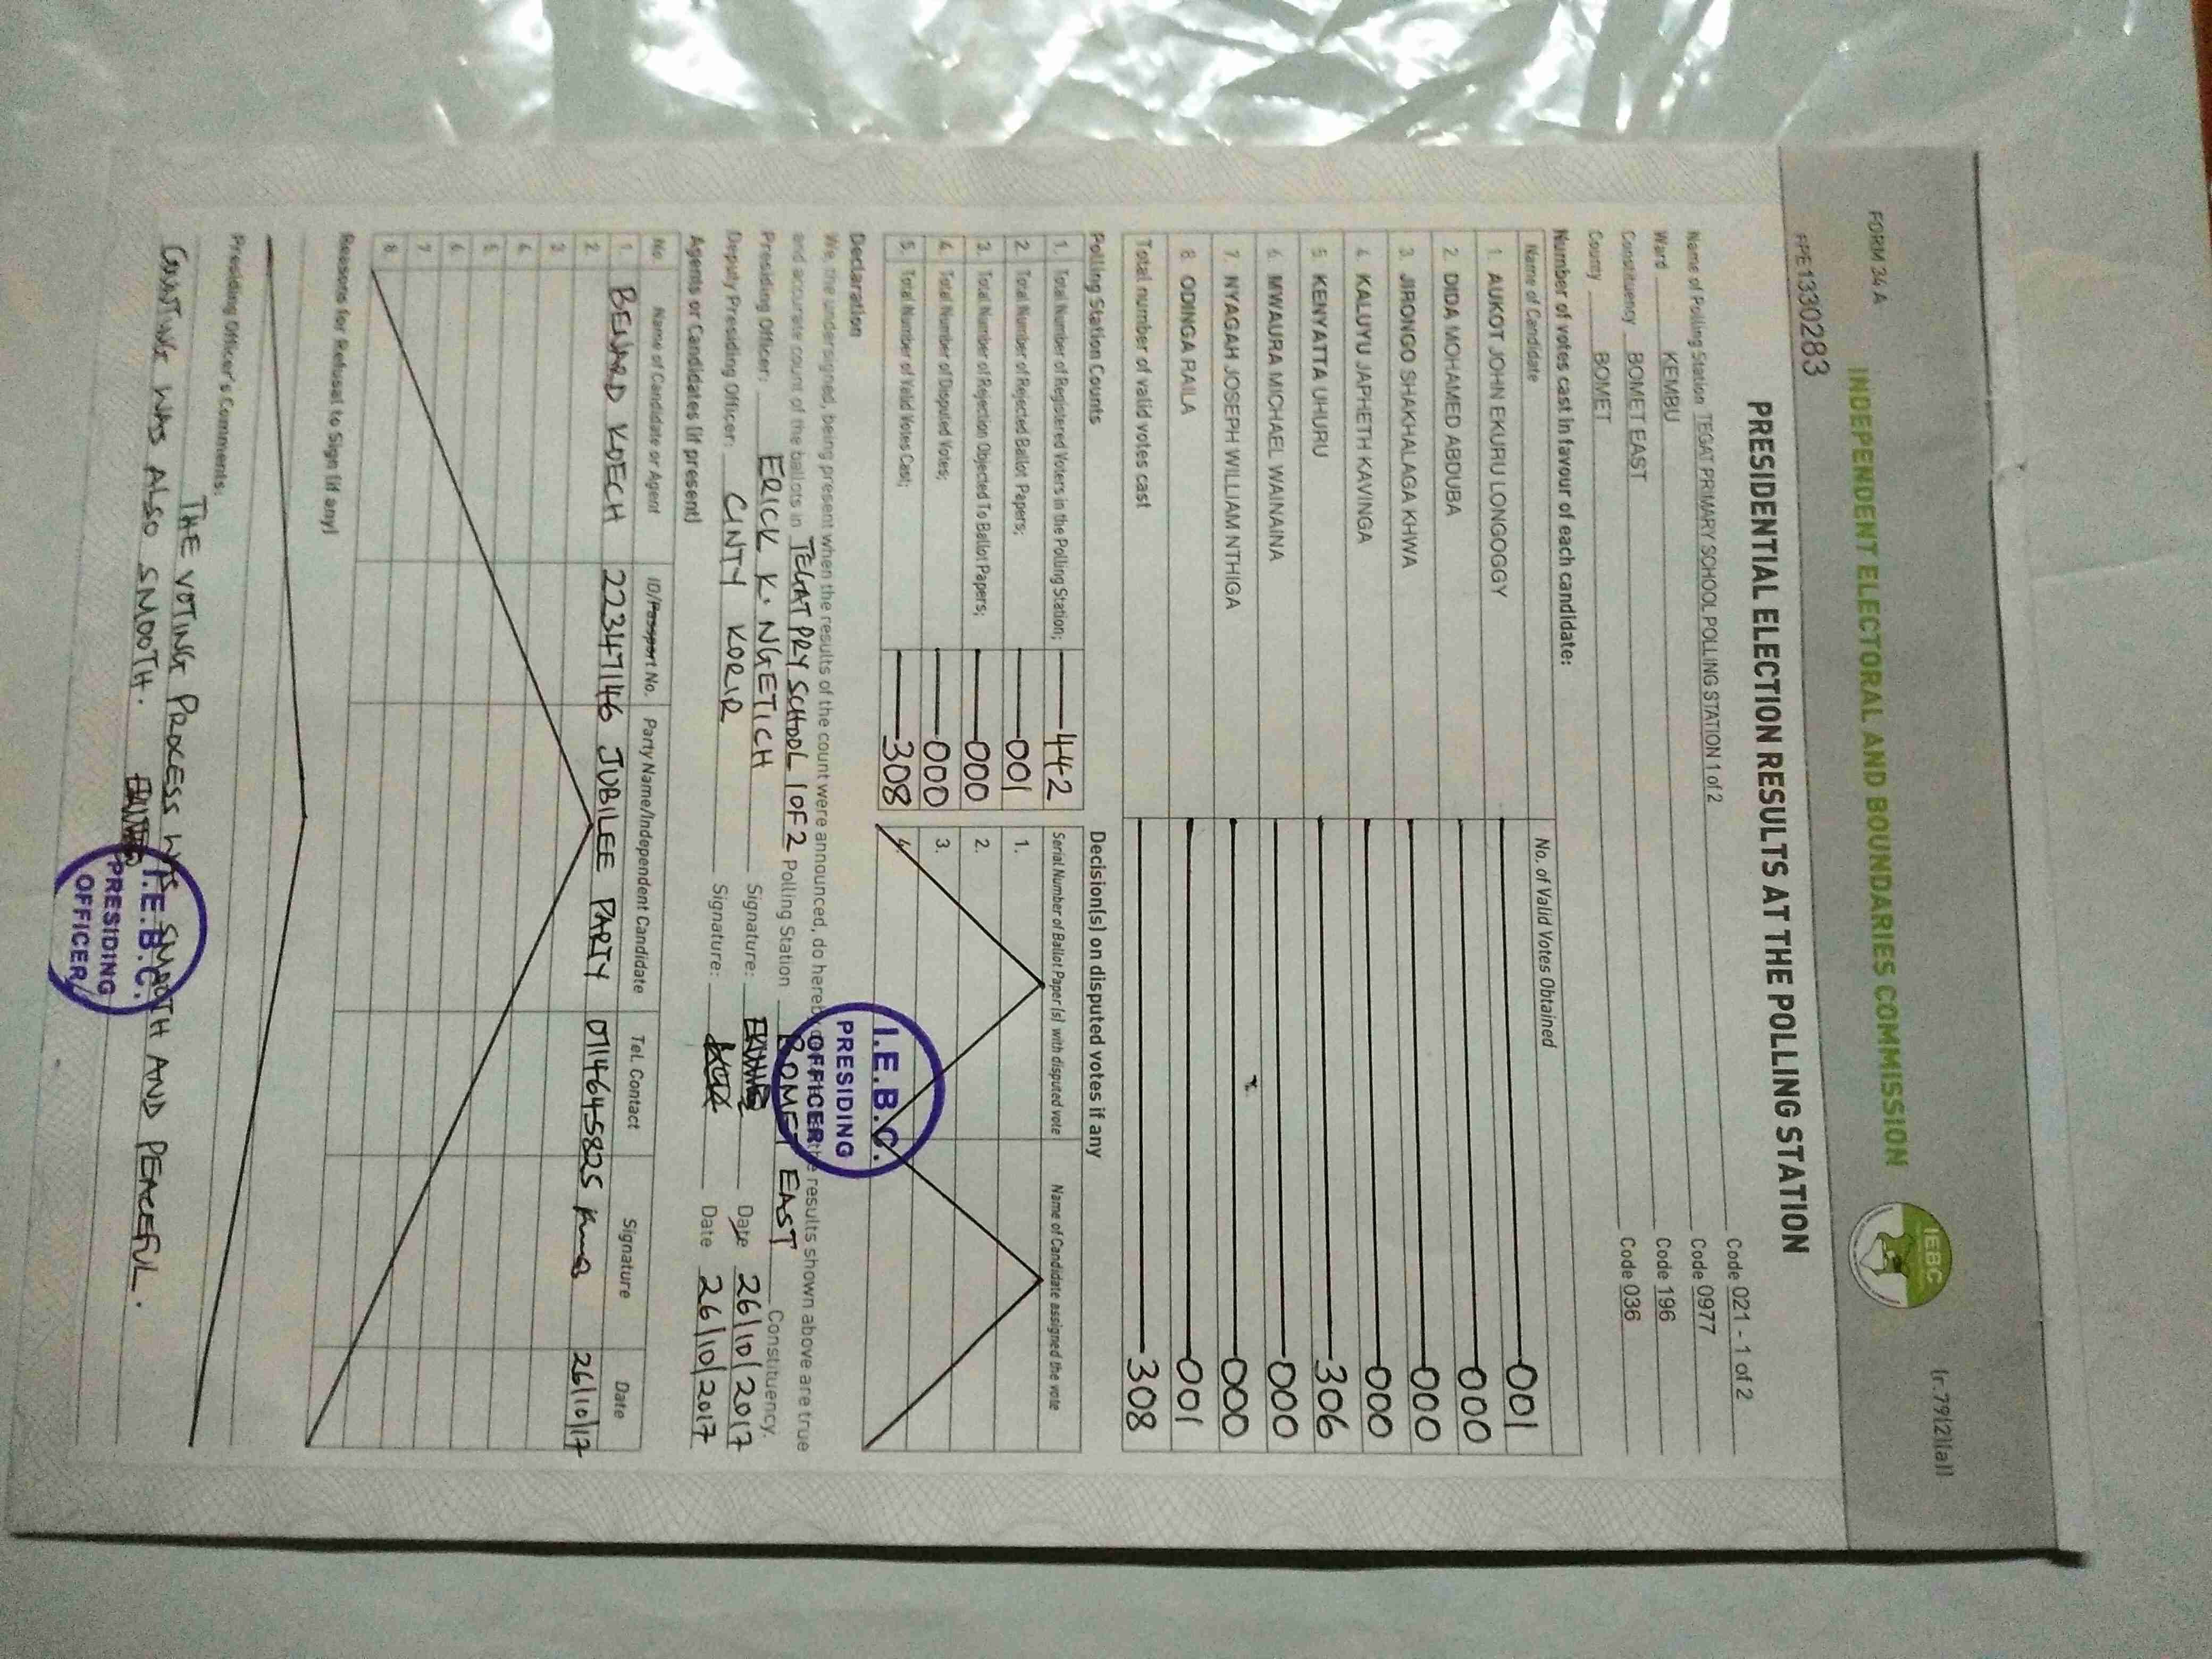 FORM 34 A
(r.79(2)(a))
INDEPENDENT ELECTORAL AND BOUNDARIES COMMISSION
IEBC
PRE1330283
PRESIDENTIAL ELECTION RESULTS AT THE POLLING STATION
Name of Polling Station TEGAT PRIMARY SCHOOL POLLING STATION 1 of 2 Code 021 - 1 of 2
Code 0977
Ward KEMBU Code 196
Constituency BOMET EAST Code 036
County BOMET
Number of votes cast in favour of each candidate:
Name of Candidate No. of Valid Votes Obtained
1. AUKOT JOHN EKURU LONGOGGY 001
2. DIDA MOHAMED ABDUBA 000
3. JIRONGO SHAKHALAGA KHWA 000
4. KALUYU JAPHETH KAVINGA 000
5. KENYATTA UHURU 306
6. MWAURA MICHAEL WAINAINA 000
7. NYAGAH JOSEPH WILLIAM NTHIGA 000
8. ODINGA RAILA 001
Total number of valid votes cast 308
Polling Station Counts
1. Total Number of Registered Voters in the Polling Station; 442
2. Total Number of Rejected Ballot Papers; 001
3. Total Number of Rejection Objected To Ballot Papers; 000
4. Total Number of Disputed Votes; 000
5. Total Number of Valid Votes Cast; 308
Decision(s) on disputed votes if any
Serial Number of Ballot Paper(s) with disputed vote Name of Candidate assigned the vote
1.
2.
3.
4.
I.E.B.C.
PRESIDING
OFFICER
Declaration
We, the undersigned, being present when the results of the count were announced, do hereby the results shown above are true
and accurate count of the ballots in TEGAT PRY SCHOOL 1 OF 2 Polling Station BOMET EAST Constituency.
Presiding Officer: ERICK K. NGETICH Signature: Date 26/10/2017
Deputy Presiding Officer: CINTY KORIR Signature: Date 26/10/2017
Agents or Candidates (if present)
No. Name of Candidate or Agent ID/Passport No. Party Name/Independent Candidate Tel. Contact Signature Date
1. BENARD KOECH 22347146 JUBILEE PARTY 0714645825 26/10/17
2.
3.
4.
5.
6.
7.
8.
Reasons for Refusal to Sign (if any)
Presiding Officer's Comments:
THE VOTING PROCESS WAS SMOOTH AND PEACEFUL.
COUNTING WAS ALSO SMOOTH.
I.E.B.C.
PRESIDING
OFFICER